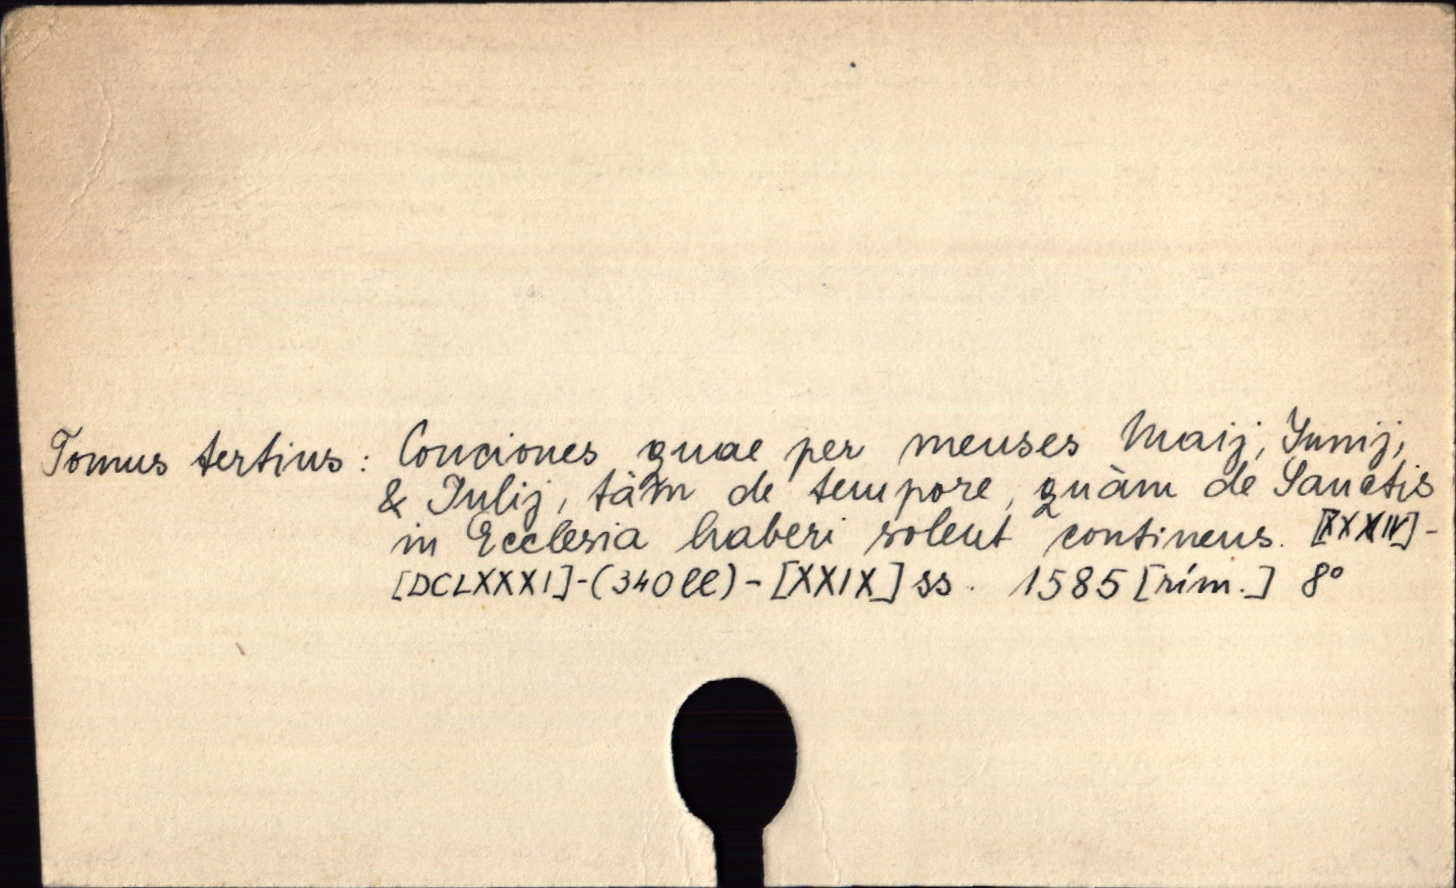 Tomus tertius: Conciones quae per menses Maij, Iunij,
& Iulij, tàm de tempore, quàm de Sanctis
in Ecclesia haberi solent continens. [XXXIV]-
[DCLXXXI]-(340 ll)-[XXIX] ss. 1585 [rím.] 8°